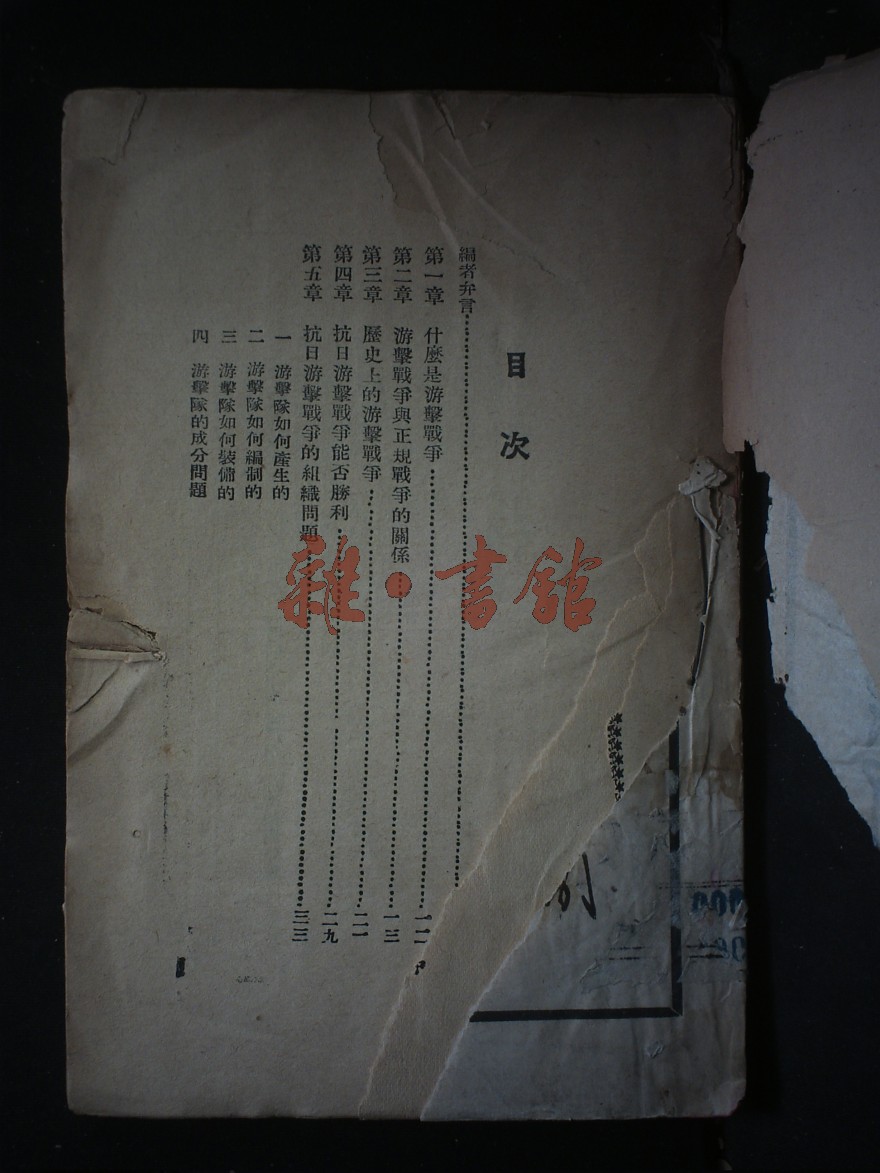 目次
編者弁言
第一章 什麽是游擊戰爭
第二章 游擊戰爭與正規戰爭的關係 一三
第三章 歷史上的游擊戰爭 二一
第四章 抗日游擊戰爭能否勝利 二九
第五章 抗日游擊戰爭的組織問題 三三
一 游擊隊如何產生的
二 游擊隊如何編制的
三 游擊隊如何裝備的
四 游擊隊的成分問題
雜·書館